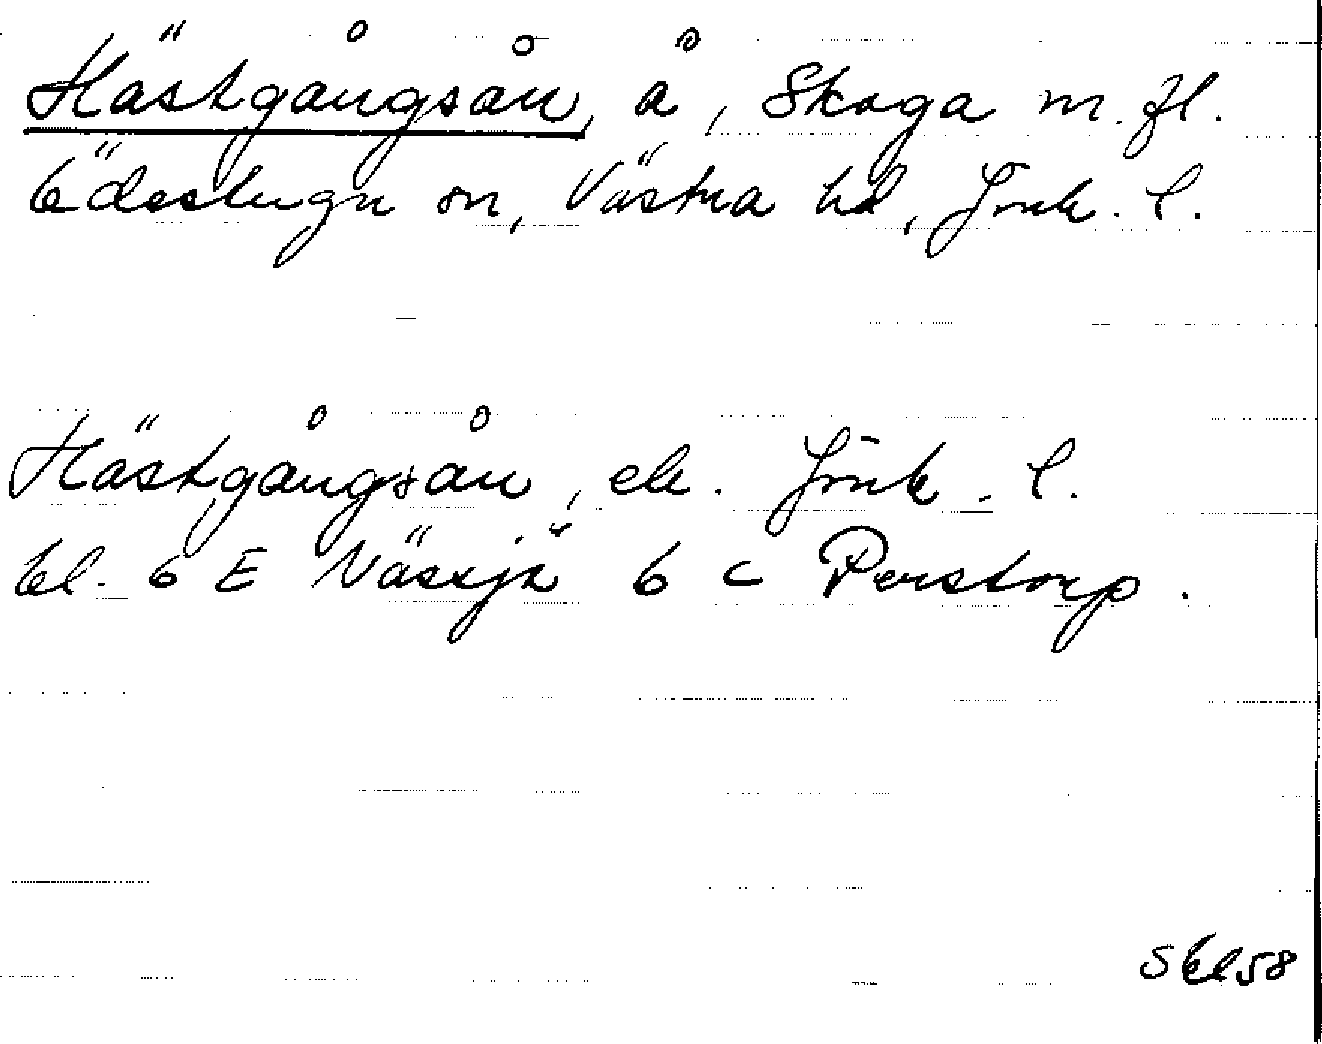 Hästgångsån, å, Skoga m. fl.
Bäckseda sn, Västra hd, Jönk. l.
Hästgångsån, ek. Jönk. l.
bl. 6 E Nässjö 6 c Perstorp.